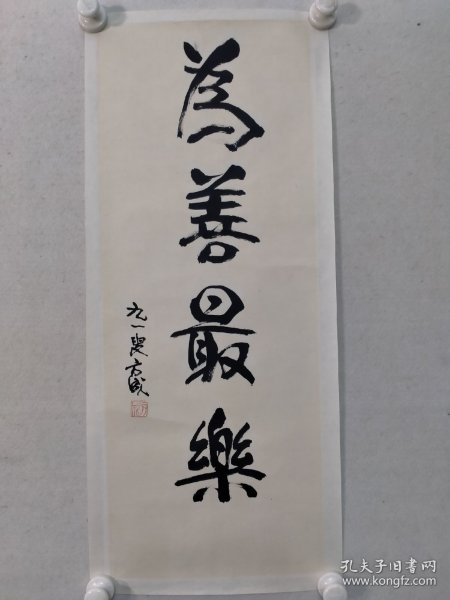 為善最樂
九一叟方成
孔夫子旧书网
www.kongfz.com